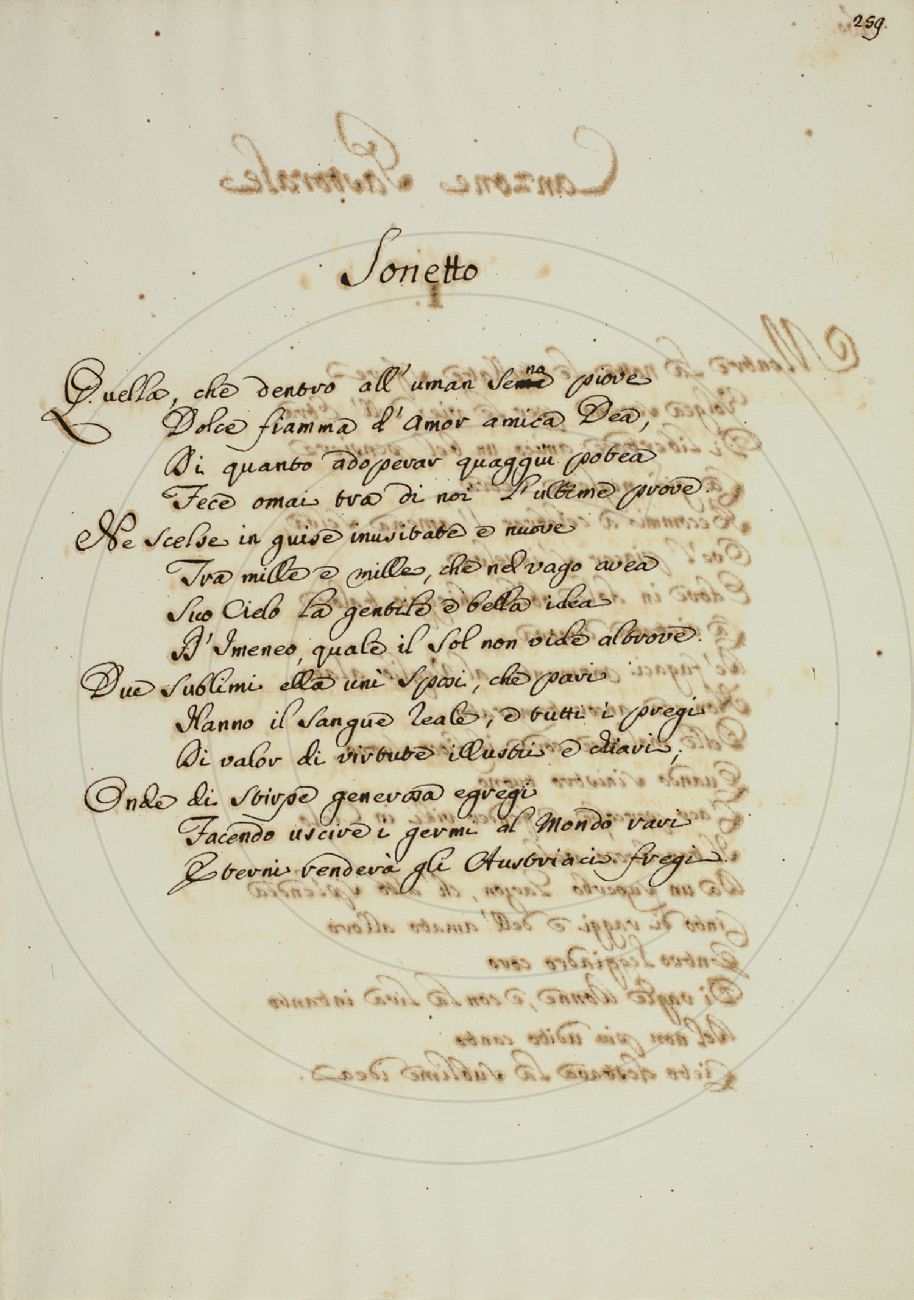 259.
Sonetto
Quella, che dentro all'uman seno piove
Dolce fiamma d'Amor amica Dea,
Di quanto adoperar quaggiù potea
Fece omai tra di noi l'ultime prove.
Ne scelse in guise inusitate e nuove
Tra mille e mille, che nel vago avea
Suo Cielo la gentile e bella idea
D'Imeneo, quale il Sol non vide altrove.
Due sublimi ella unì Sposi, che pari
Hanno il sangue reale, e tutti i pregi
Di valor di virtute illustri e chiari;
Onde di stirpe generosa egregi
Facendo uscire i germi al Mondo rari
Eterni renderà gli Austriaci fregi.